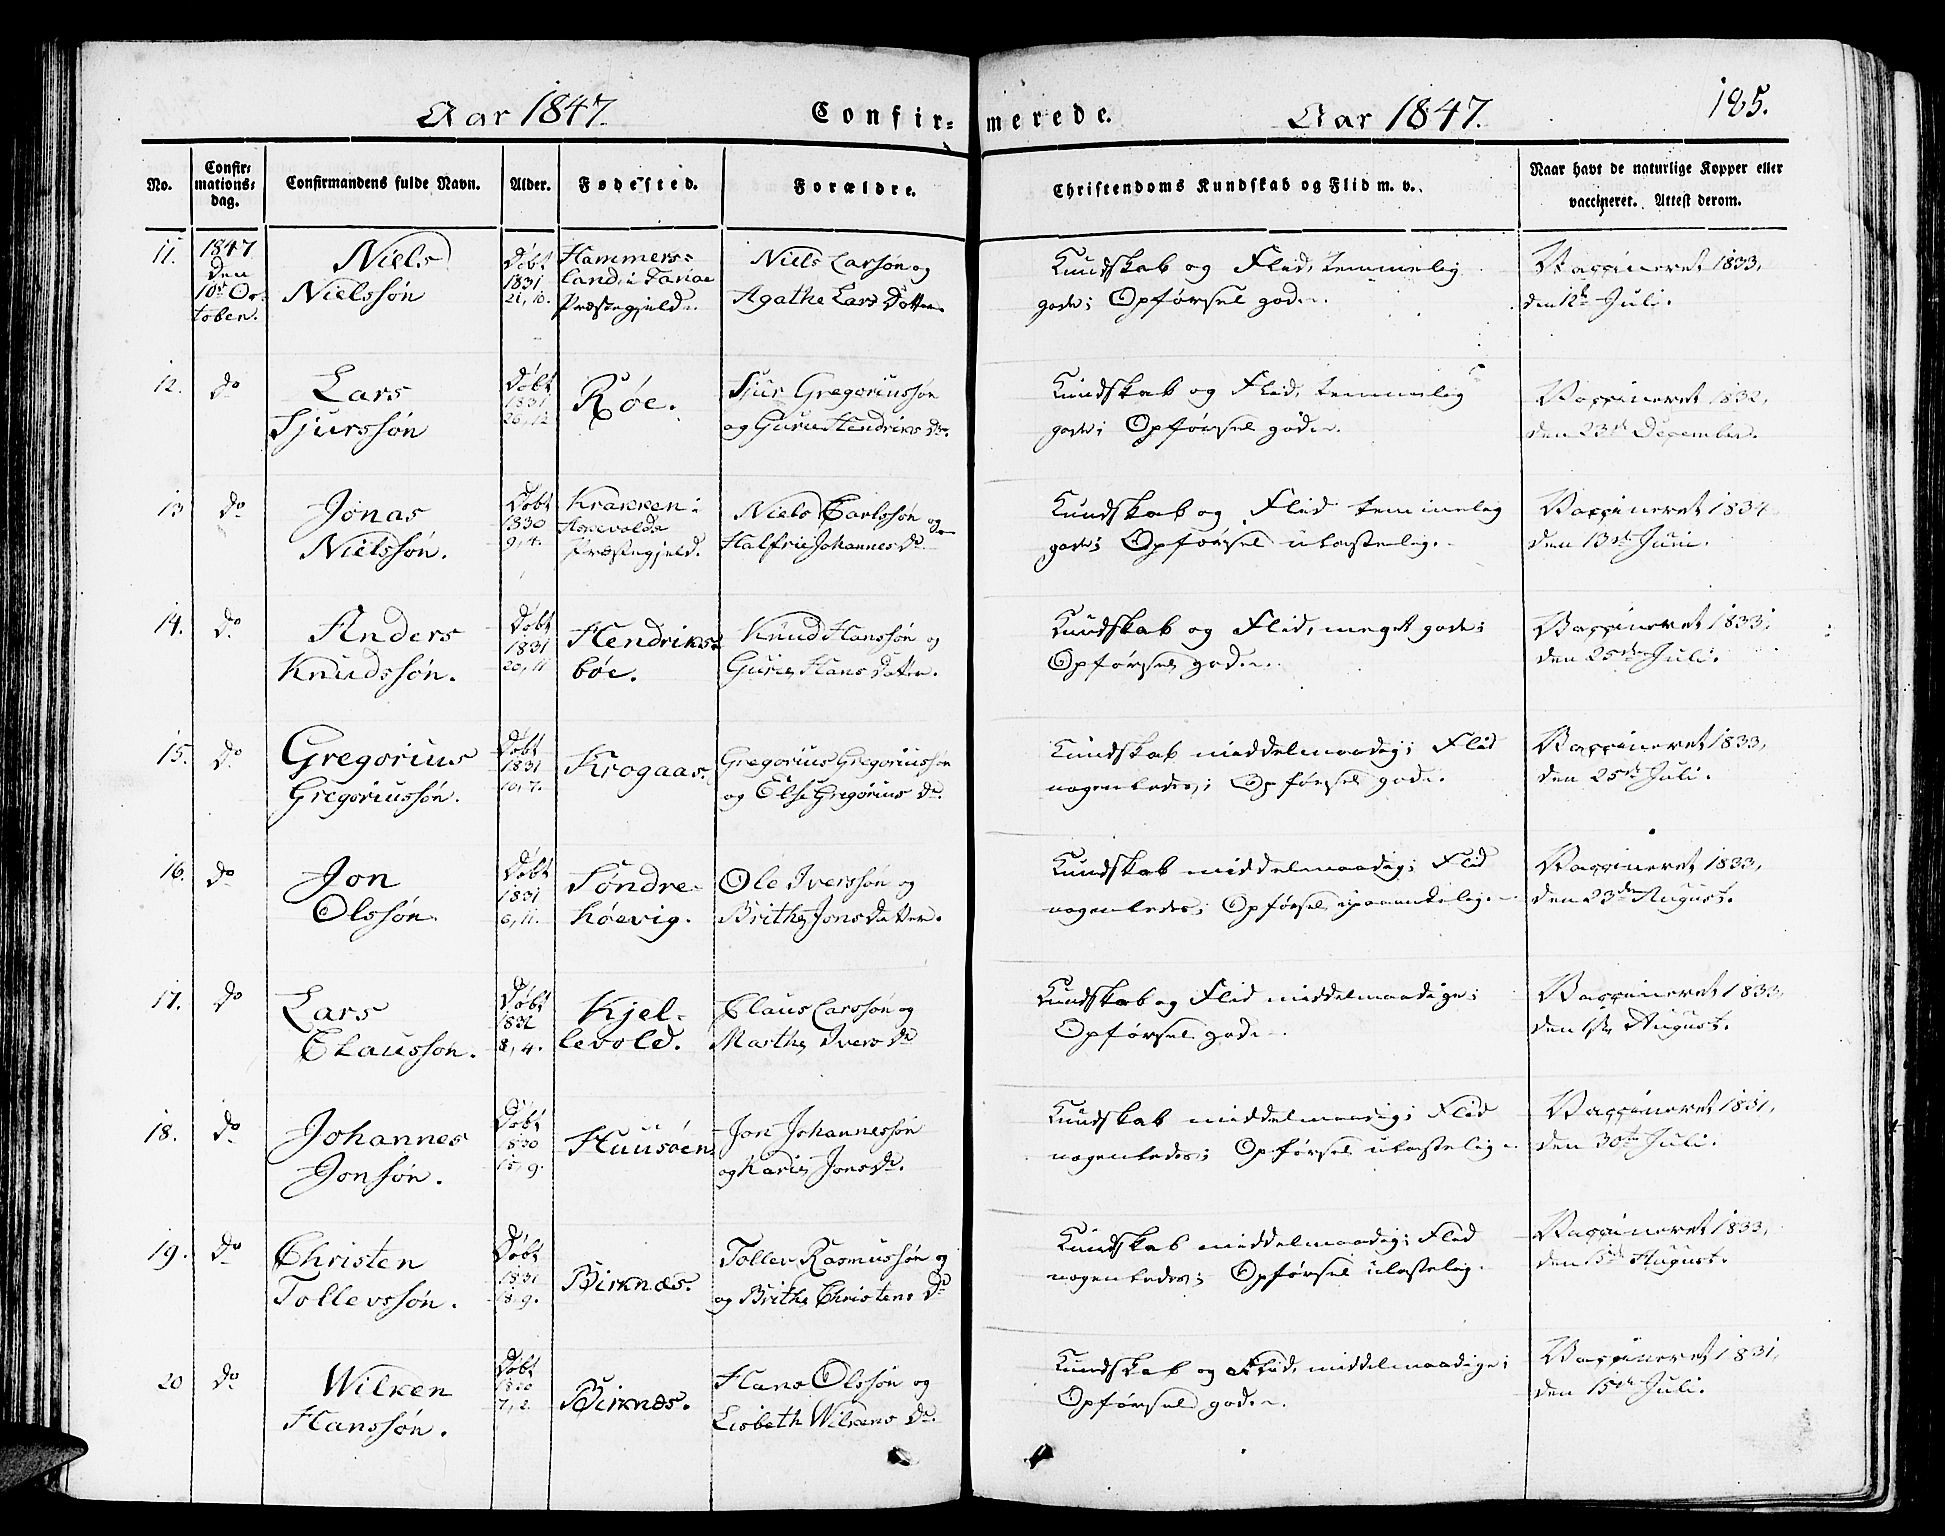 Aar 1847. Confirmerede. Aar 1847. 185.
No. Confirmations-dag. Confirmandens fulde Navn. Alder. Fødested. Forældre. Christendoms Kundskab og Flid m. v. Naar havt de naturlige Kopper eller vaccineret. Attest derom.
11. 1847 Niels Døbt Hammers- Niels Larsøn og Kundskab og Flid, temmelig Vaccineret 1833,
Den 1831 land i
10de Oc- Nielssøn 21, 10. Præstegjeld. Agathe Lars Datter gode; Opførsel god. den 12te Juli.
tober.
12. do Lars Døbt Røe. Sjur Gregoriussøn Kundskab og Flid, temmelig Vaccineret 1832,
1831
Sjurssøn 26, 12 og Guru Hendriks Dr. gode; Opførsel god. den 23de December.
13 do Jonas Døbt Krakken i Niels Carlssøn og Kundskab og Flid temmelig Vaccineret 1834
1830 Askevolds
Nielssøn. 9, 4. Præstegjeld. Halfrie Johannes Dr gode; Opførsel ulastelig. den 13de Juni.
14. do Anders Døbt Hendriks- Knud Hanssøn og Kundskab og Flid, meget gode; Vaccineret 1833,
1831
Knudssøn. 20, 11 bøe. Guri Hans Datter. Opførsel god. den 25de Juli.
15. do Gregorius Døbt Krogaas. Gregorius Gregoriussøn Kundskab middelmaadig; Flid Vaccineret 1833,
1831
Gregoriussøn. 10, 7. og Else Gregorius Dr. nogenledes; Opførsel god. den 25de Juli.
16. do Jon Døbt Søndre- Ole Iverssøn og Kundskab middelmaadig; Flid Vaccineret 1833,
1831
Olssøn. 6, 11. høevig. Brithe Jons Datter. nogenledes; Opførsel upaaankelig. den 23de August.
17. do Lars Døbt Kjel- Claus Larssøn og Kundskab og Flid middelmaadige; Vaccineret 1833,
1832
Claussøn. 8, 4. levold. Marthe Ivers Dr Opførsel god. den 1ste August.
18. do Johannes Døbt Huusøen Jon Johannessøn Kundskab middelmaadig; Flid Vaccineret 1831,
1830
Jonsøn. 15, 9. og Kari Jons Dr. nogenledes; Opførsel ulastelig. den 30te Juli.
19. do Christen Døbt Birknæs. Tollev Rasmussøn og Kundskab middelmaadig; Flid Vaccineret 1833,
1831
Tollevssøn. 18, 9. og Brithe Christens Dr nogenledes; Opførsel ulastelig. den 15de August.
20 do Wilken Døbt Birknæs. Hans Olssøn og Kundskab og Flid, middelmaadige; Vaccineret 1831,
1830
Hanssøn. 7, 2. Lisbeth Wilkens Dr. Opførsel god. den 15de Juli.